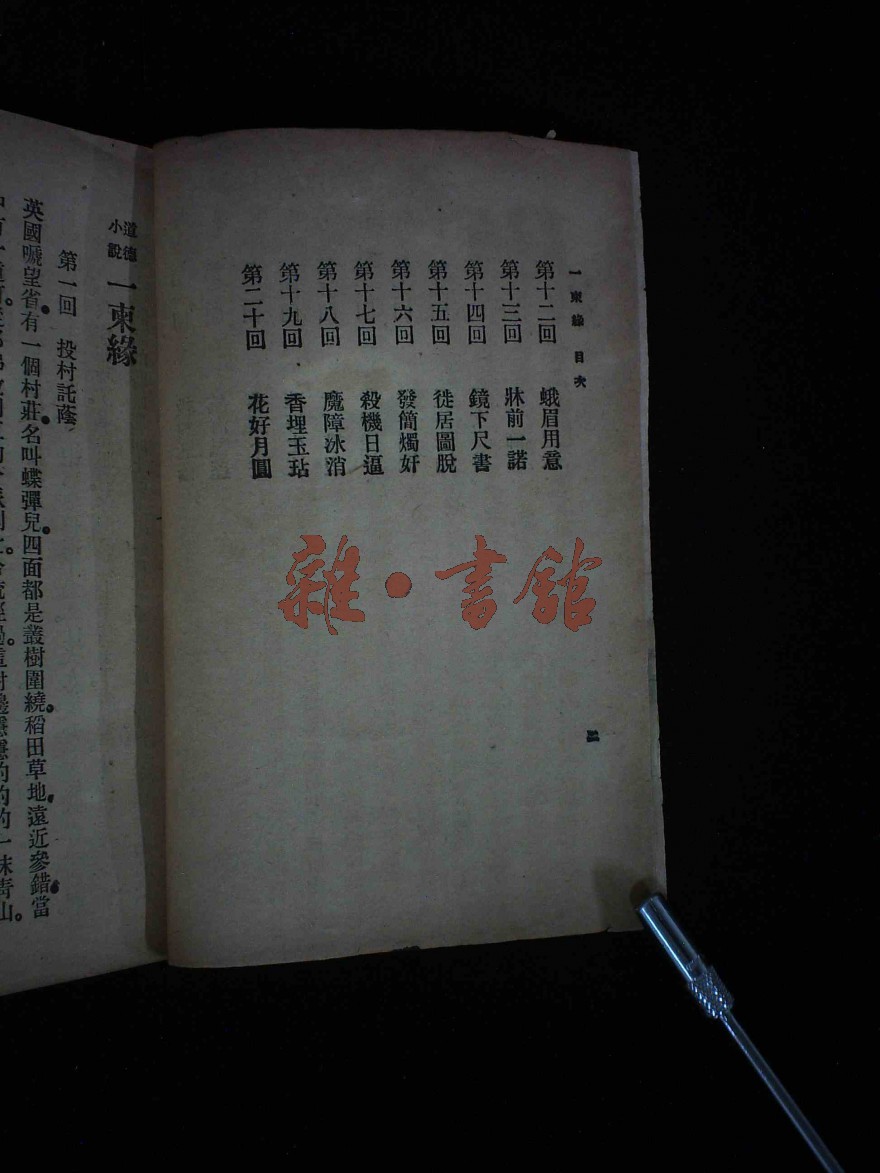 一柬緣 目次
第十二回 蛾眉用意
第十三回 牀前一諾
第十四回 鏡下尺書
第十五回 徙居圖脫
第十六回 發簡燭奸
第十七回 殺機日逼
第十八回 魔障冰消
第十九回 香埋玉玷
第二十回 花好月圓
二
雜·書館
道德小說 一柬緣
第一回 投村託蔭
英國囐望省。有一個村莊。名叫蝶彈兒。四面都是叢樹圍繞。稻田草地。遠近參錯。當
一抹青山。